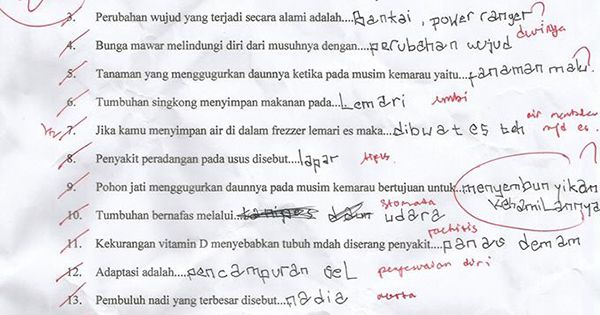 4. Perubahan wujud yang terjadi secara alami adalah....Bantai, power ranger ?
4. Bunga mawar melindungi diri dari musuhnya dengan....perubahan wujud durinya
5. Tanaman yang menggugurkan daunnya ketika pada musim kemarau yaitu....tanaman mak ?
6. Tumbuhan singkong menyimpan makanan pada....Lemari umbi
7. Jika kamu menyimpan air di dalam frezzer lemari es maka....dibuat es teh air membeku mjd es.
8. Penyakit peradangan pada usus disebut....lapar tipus.
9. Pohon jati menggugurkan daunnya pada musim kemarau bertujuan untuk..menyembunyikan kehamilannya ?
10. Tumbuhan bernafas melalui... udara stomata
11. Kekurangan vitamin D menyebabkan tubuh mdah diserang penyakit....panas demam
12. Adaptasi adalah....pencampuran sel penyesuaian diri
13. Pembuluh nadi yang terbesar disebut....nadia aorta